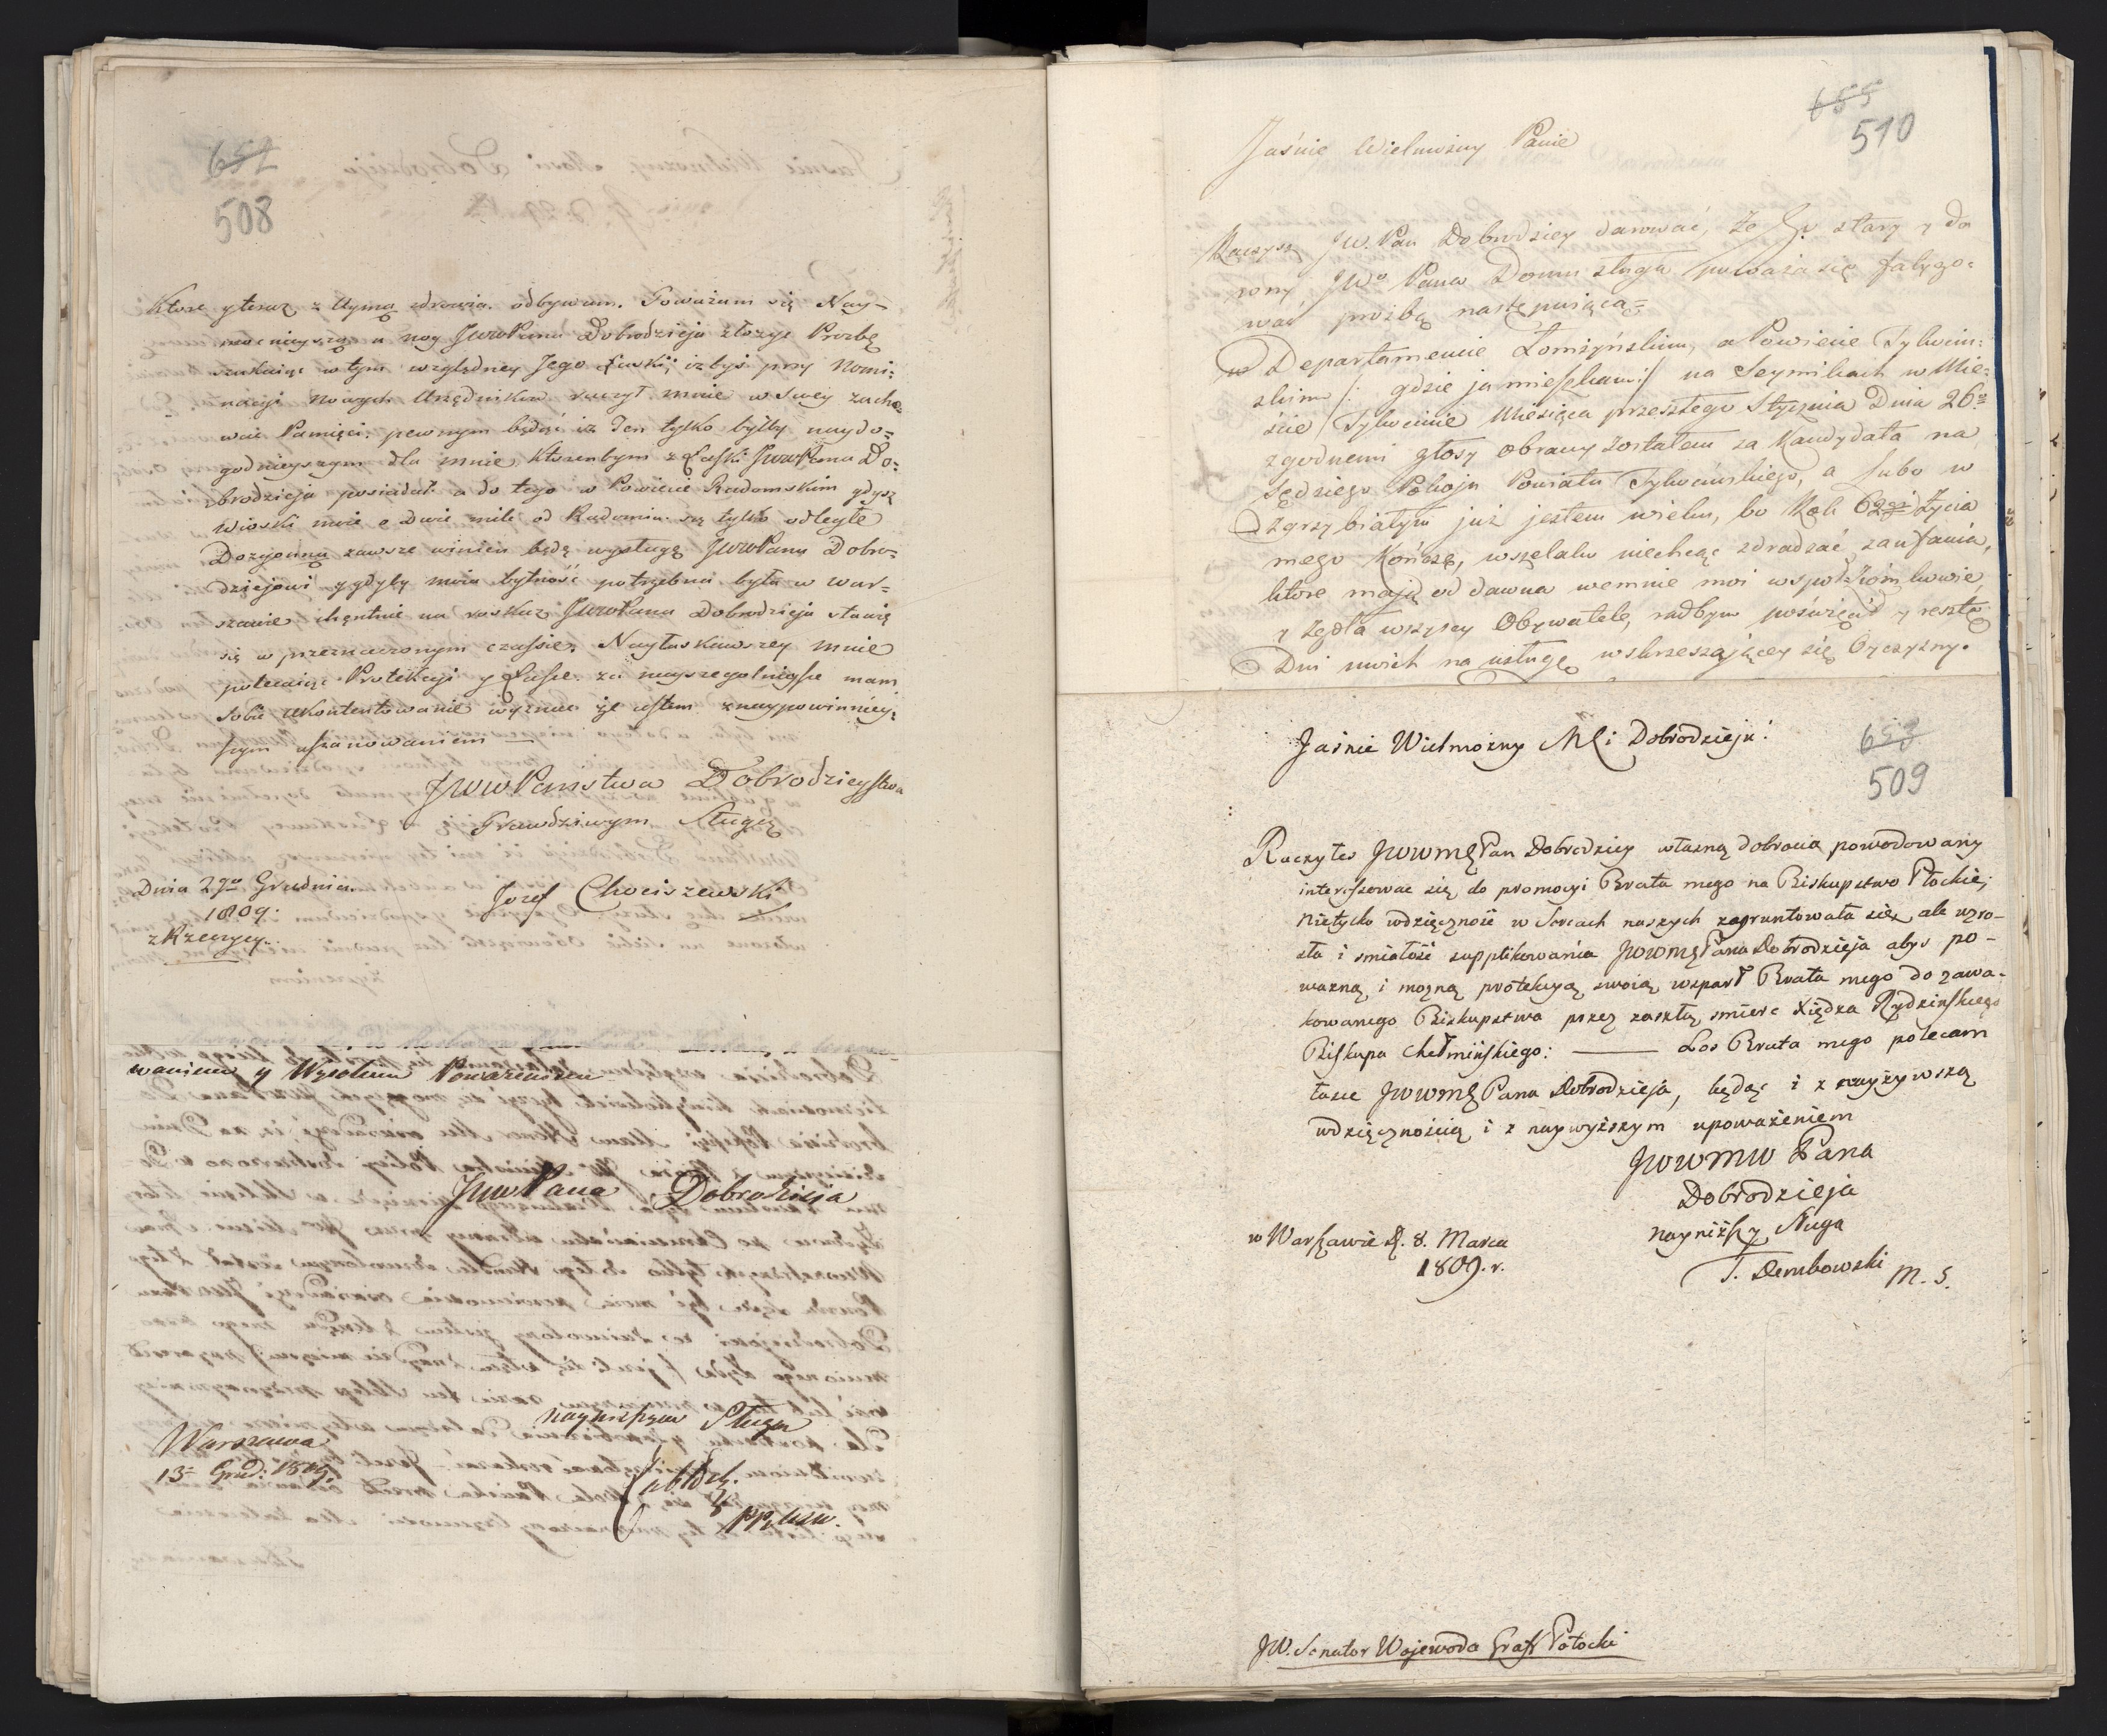 652
508
które y teraz z Uymą zdrowia odbywam. Poważam się Nay-
mocnieyszą u nog JwwPana Dobrodzieja złożyc Prozbę
szukaiąc w tym względney Jego Łaski; izbyś przy Nomi:
nacyi Nowych Urzędnikow raczył mnie w Swey zacho
wać Pamięci. pewnym będąc iz Ten tylko byłby naydo=
godnieyszym dla mnie, ktorenbym z Łaski JwwPana Do:
brodzieja posiadał a do tego w Powiecie Radomskim gdysz
Wioski moie o Dwie mile od Radomia są tylko odległe
Dozgonną zawsze winien będę wysługę JwwPanu Dobro=
dziejowi y gdyby moia bytność potrzebna była w War=
szawie chętnie na roskaz JwwPana Dobrodzieja stawię
się w przeznaczonym czasie. Nayłaskawszey mnie
polecaiąc Protekcyi y Łasce. za nayszczegolnieysze mam
sobie ukontentowanie wyznać że iestem z naypowinniey:
szym uszanowaniem —
JwwPaństwa Dobrodzieystwa
Prawdziwym Sługą
Dnia 29o Grudnia
1809:
z Rzeczycy.
Jozef Chociszewski
waniem y Wysokiem Poważeniem
JwwPana Dobrodzieja
nayniższym Sługą
Warszawa
13= Grud: 1809.
655
510
Jaśnie Wielmożny Panie
Raczysz JW. Pan Dobrodziey darować, że stary y do
zony JWo Pana Domu sługa poważa się fatygo:
wać prozbą następuiącą=
w Departamencie Łomżyńskim, a Powiecie Tykocin:
skim /: gdzie ja mieszkam :/ na Seymikach w Mie:
ście Tykocinie Miesiąca przeszłego Stycznia Dnia 26o
zgodnemi głosy obrany zostałem za Kandydata na
Sędziego Pokoju Powiatu Tykocińskiego, a lubo w
zgrzybiałym już jestem wieku, bo Rok 62gi Życia
mego Kończę, wszelako niechcąc zdradzać zaufania,
które mają od dawna wemnie moi wspołziomkowie
y Zgoła wszyscy Obywatele, radbym poświęcić y resztę
Dni moich na usługę wskrzeszającey się Oyczyzny.
Jaśnie Wielmożny Mći Dobrodzieju!
653
509
Raczyłes JWWMę Pan Dobrodziey własną dobrocią powodowany
interessować się do promocyi Brata mego na Biskupstwo Płockie;
Nietylko wdzięcznosć w Sercach naszych zagruntowała się, ale uro-
sła i smiałość supplikowania JWWMę Pana Dobrodzieja abys po-
ważną i mozną protekcyą swoią wsparł Brata mego do zawa-
kowanego Biskupstwa przez zaszłą smierc Xiędza Rydzinskiego
Biskupa Chełmińskiego: — Los Brata mego polecam
łasce JWWMę Pana Dobrodzieja, będąc i z nayżywszą
wdzięcznością i z naywyższym upoważeniem
JWWMW Pana
Dobrodzieja
nayniższy Sługa
w Warszawie d. 8. Marca
1809. r.
T. Dembowski M. S.
JW. Senator Wojewoda Graff Potocki